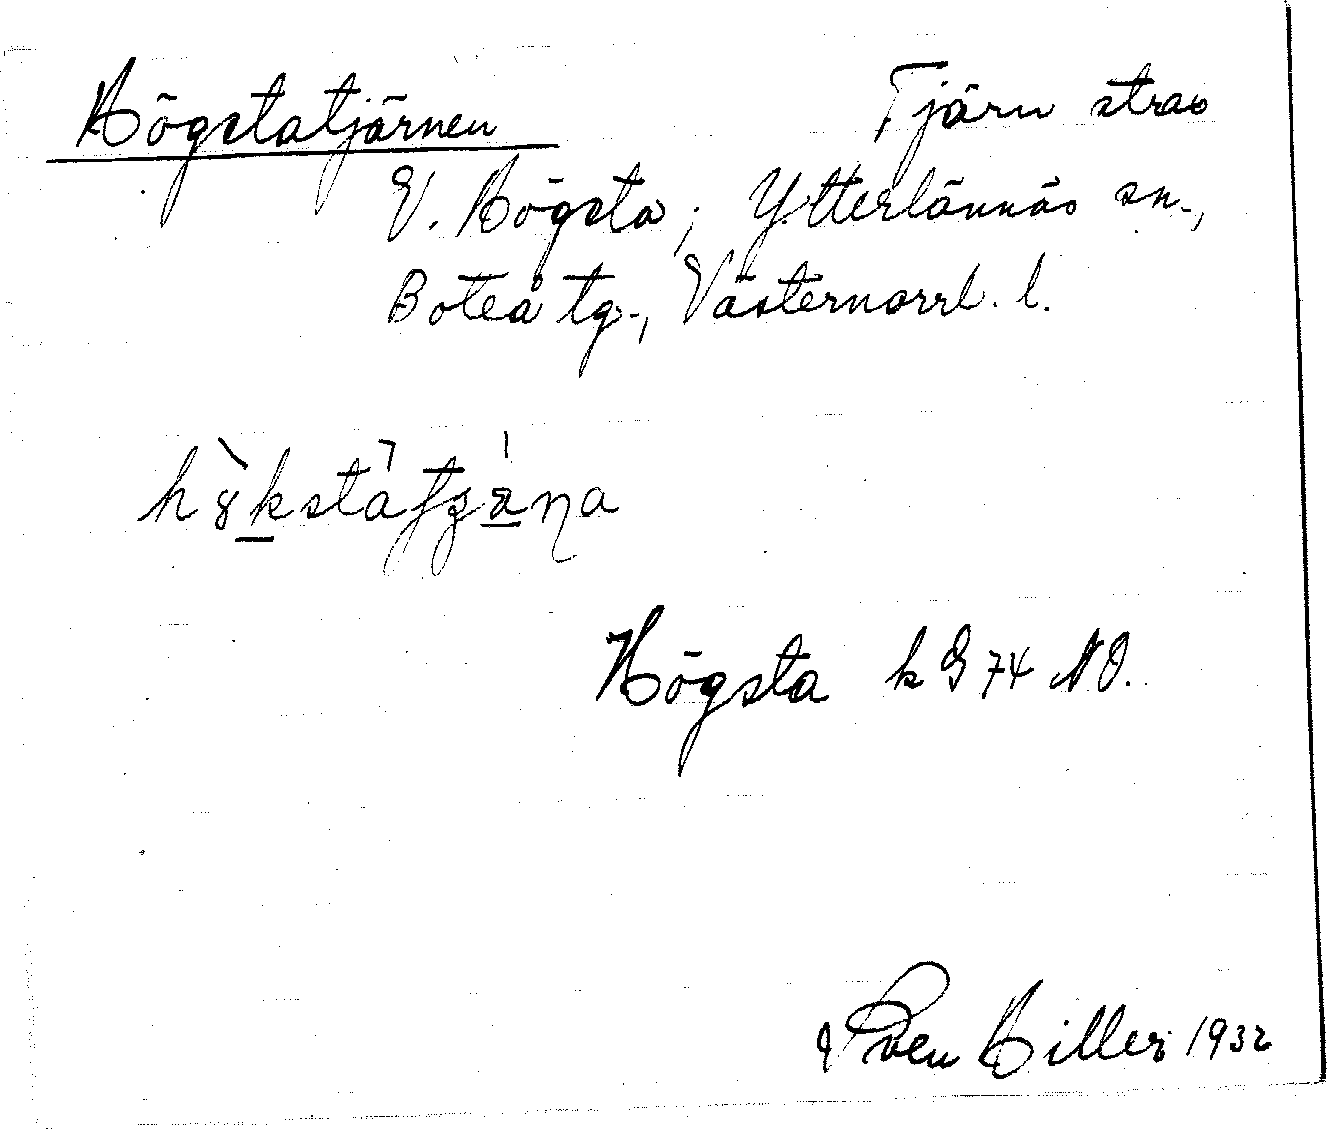 Högstatjärnen Tjärn strax
V. Högsta, Ytterlännäs sn.,
Boteå tg., Västernorrl. l.
Högsta k G 74 NO.
Sven Hiller 1932